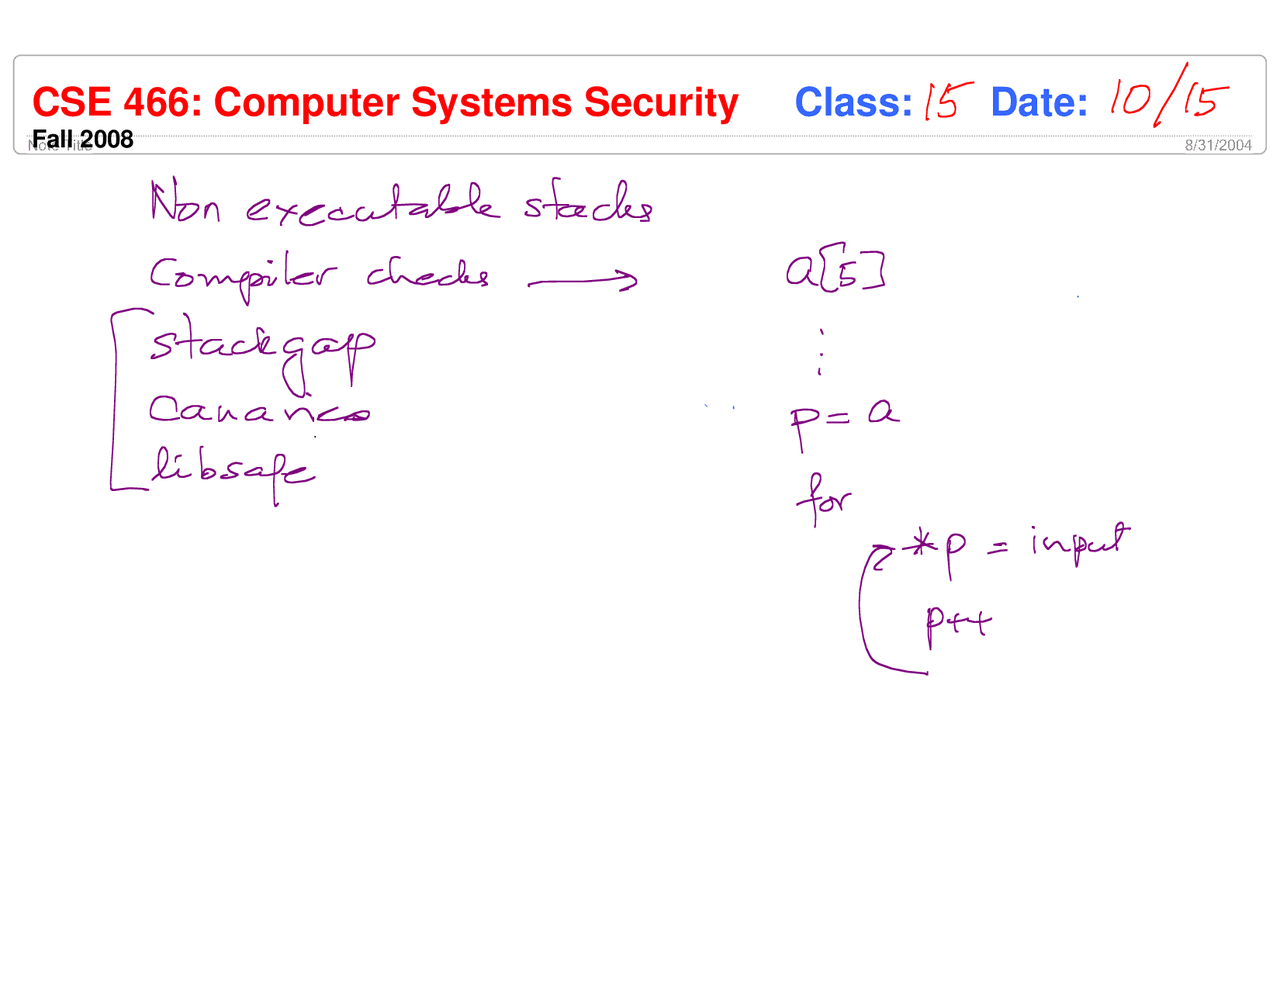 CSE 466: Computer Systems Security Class: 15 Date: 10/15
Fall 2008
Note Title
8/31/2004
Non executable stacks
Compiler checks → a[5]
stackgap
⋮
Canaries
p = a
libsafe
for
*p = input
p++